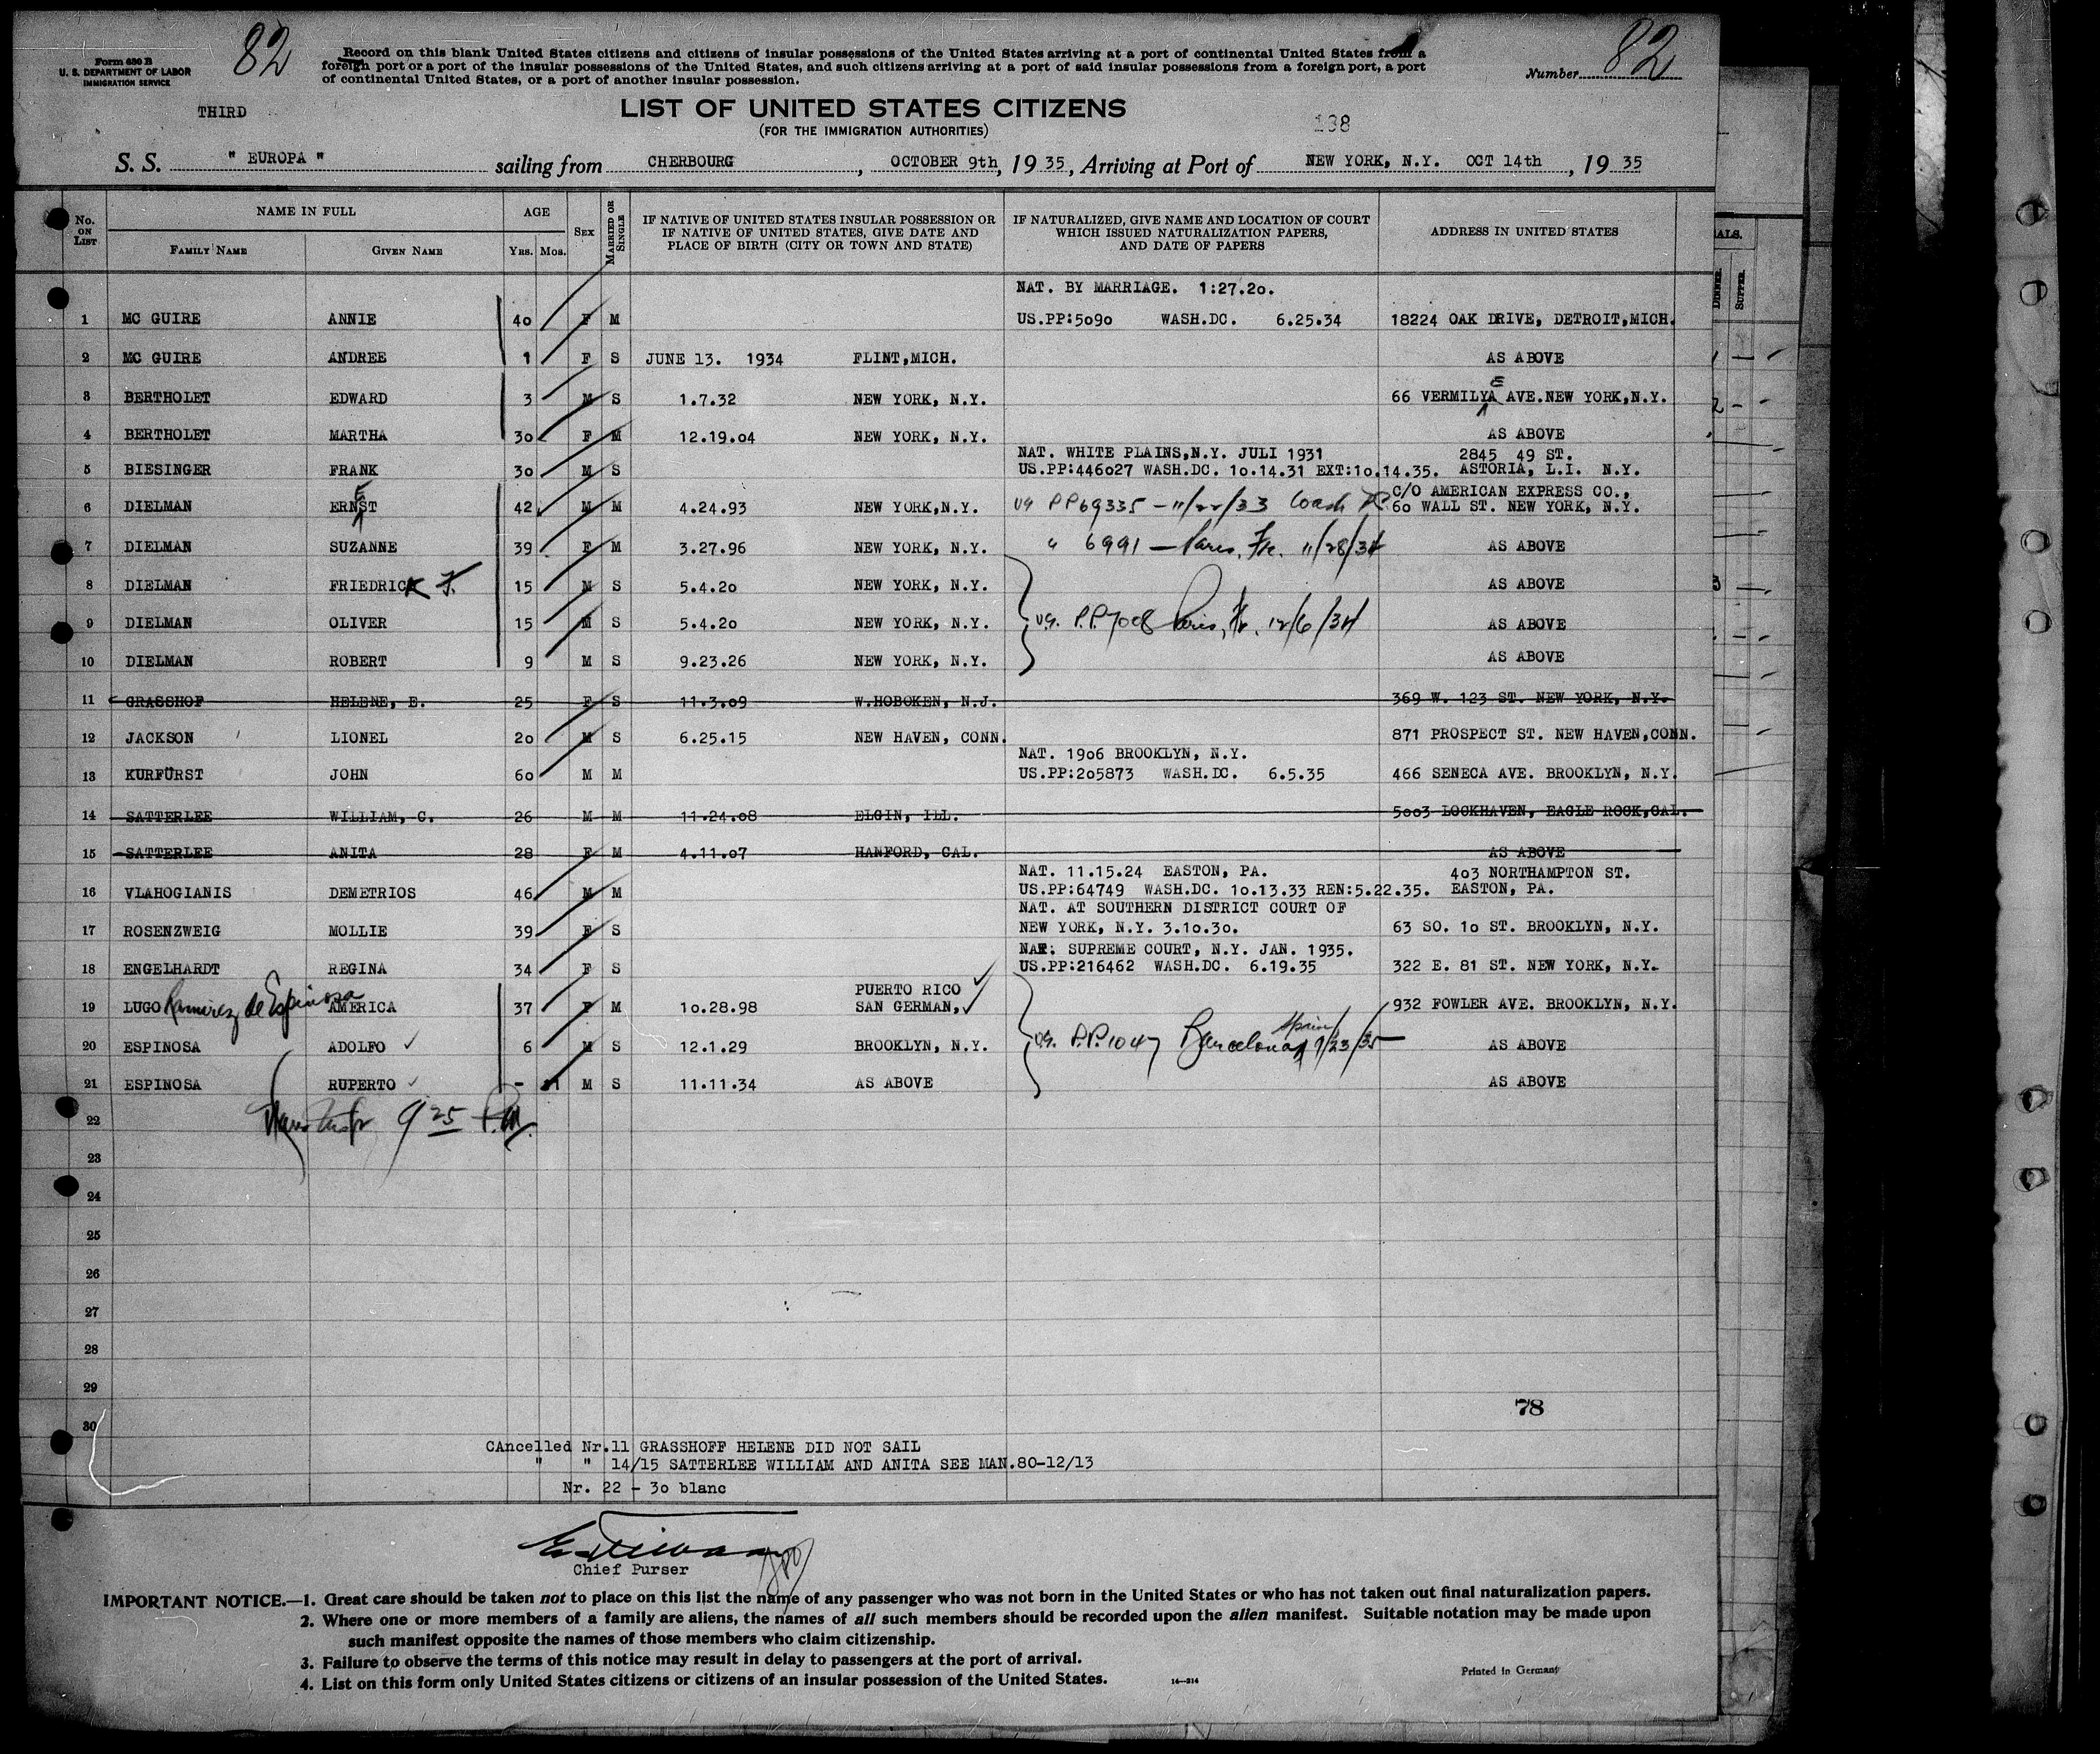 Form 630 B
U. S. DEPARTMENT OF LABOR
IMMIGRATION SERVICE
82
Record on this blank United States citizens and citizens of insular possessions of the United States arriving at a port of continental United States from a
foreign port or a port of the insular possessions of the United States, and such citizens arriving at a port of said insular possessions from a foreign port, a port
of continental United States, or a port of another insular possession.
Number 82
THIRD
LIST OF UNITED STATES CITIZENS
(FOR THE IMMIGRATION AUTHORITIES)
138
S. S. " EUROPA " sailing from CHERBOURG, OCTOBER 9th, 19 35, Arriving at Port of NEW YORK, N.Y. OCT 14th, 19 35
No. ON LIST NAME IN FULL FAMILY NAME GIVEN NAME AGE YRS. MOS. SEX MARRIED OR SINGLE
IF NATIVE OF UNITED STATES INSULAR POSSESSION OR
IF NATIVE OF UNITED STATES, GIVE DATE AND
PLACE OF BIRTH (CITY OR TOWN AND STATE)
IF NATURALIZED, GIVE NAME AND LOCATION OF COURT
WHICH ISSUED NATURALIZATION PAPERS,
AND DATE OF PAPERS
ADDRESS IN UNITED STATES
ALS.
DINNER.
SUPPER.
NAT. BY MARRIAGE. 1:27.20.
1 MC GUIRE ANNIE 40 F M US.PP:5090 WASH.DC. 6.25.34 18224 OAK DRIVE, DETROIT,MICH.
2 MC GUIRE ANDREE 1 F S JUNE 13. 1934 FLINT,MICH. AS ABOVE
3 BERTHOLET EDWARD 3 M S 1.7.32 NEW YORK, N.Y. 66 VERMILYEA AVE.NEW YORK,N.Y.
4 BERTHOLET MARTHA 30 F M 12.19.04 NEW YORK, N.Y. AS ABOVE
NAT. WHITE PLAINS,N.Y. JULI 1931 2845 49 ST.
5 BIESINGER FRANK 30 M S US.PP:446027 WASH.DC. 10.14.31 EXT:10.14.35. ASTORIA, L.I. N.Y.
C/O AMERICAN EXPRESS CO.,
6 DIELMAN ERNEST 42 M M 4.24.93 NEW YORK,N.Y. US PP69335 - 11/22/33 Wash DC 60 WALL ST. NEW YORK, N.Y.
7 DIELMAN SUZANNE 39 F M 3.27.96 NEW YORK, N.Y. " 6991 - Paris, Fr. 11/28/34 AS ABOVE
8 DIELMAN FRIEDRICK F. 15 M S 5.4.20 NEW YORK, N.Y. AS ABOVE
9 DIELMAN OLIVER 15 M S 5.4.20 NEW YORK, N.Y. US. P.P.7008 Paris, Fr. 12/6/34 AS ABOVE
10 DIELMAN ROBERT 9 M S 9.23.26 NEW YORK, N.Y. AS ABOVE
11 GRASSHOF HELENE, E. 25 F S 11.3.09 W.HOBOKEN, N.J. 369 W. 123 ST. NEW YORK, N.Y.
12 JACKSON LIONEL 20 M S 6.25.15 NEW HAVEN, CONN. 871 PROSPECT ST. NEW HAVEN,CONN.
NAT. 1906 BROOKLYN, N.Y.
13 KURFÜRST JOHN 60 M M US.PP:205873 WASH.DC. 6.5.35 466 SENECA AVE. BROOKLYN, N.Y.
14 SATTERLEE WILLIAM, C. 26 M M 11.24.08 ELGIN, ILL. 5003 LOCKHAVEN, EAGLE ROCK,CAL.
15 SATTERLEE ANITA 28 F M 4.11.07 HANFORD, CAL. AS ABOVE
NAT. 11.15.24 EASTON, PA. 403 NORTHAMPTON ST.
16 VLAHOGIANIS DEMETRIOS 46 M M US.PP:64749 WASH.DC. 10.13.33 REN:5.22.35. EASTON, PA.
NAT. AT SOUTHERN DISTRICT COURT OF
17 ROSENZWEIG MOLLIE 39 F S NEW YORK, N.Y. 3.10.30. 63 SO. 10 ST. BROOKLYN, N.Y.
NAT; SUPREME COURT, N.Y. JAN. 1935.
18 ENGELHARDT REGINA 34 F S US.PP:216462 WASH.DC. 6.19.35 322 E. 81 ST. NEW YORK, N.Y.
PUERTO RICO
19 LUGO Ramirez de Espinosa AMERICA 37 F M 10.28.98 SAN GERMAN, 932 FOWLER AVE. BROOKLYN, N.Y.
20 ESPINOSA ADOLFO 6 M S 12.1.29 BROOKLYN, N.Y. US. P.P.1047 Barcelona, Spain 9/23/35 AS ABOVE
21 ESPINOSA RUPERTO - 11 M S 11.11.34 AS ABOVE AS ABOVE
22 9 25 P.M.
23
24
25
26
27
28
29
78
30
CAncelled Nr.11 GRASSHOFF HELENE DID NOT SAIL
" " 14/15 SATTERLEE WILLIAM AND ANITA SEE MAN.80-12/13
Nr. 22 - 30 blanc
Chief Purser
IMPORTANT NOTICE.—1. Great care should be taken not to place on this list the name of any passenger who was not born in the United States or who has not taken out final naturalization papers.
2. Where one or more members of a family are aliens, the names of all such members should be recorded upon the alien manifest. Suitable notation may be made upon
such manifest opposite the names of those members who claim citizenship.
3. Failure to observe the terms of this notice may result in delay to passengers at the port of arrival.
4. List on this form only United States citizens or citizens of an insular possession of the United States.
14—314
Printed in Germany